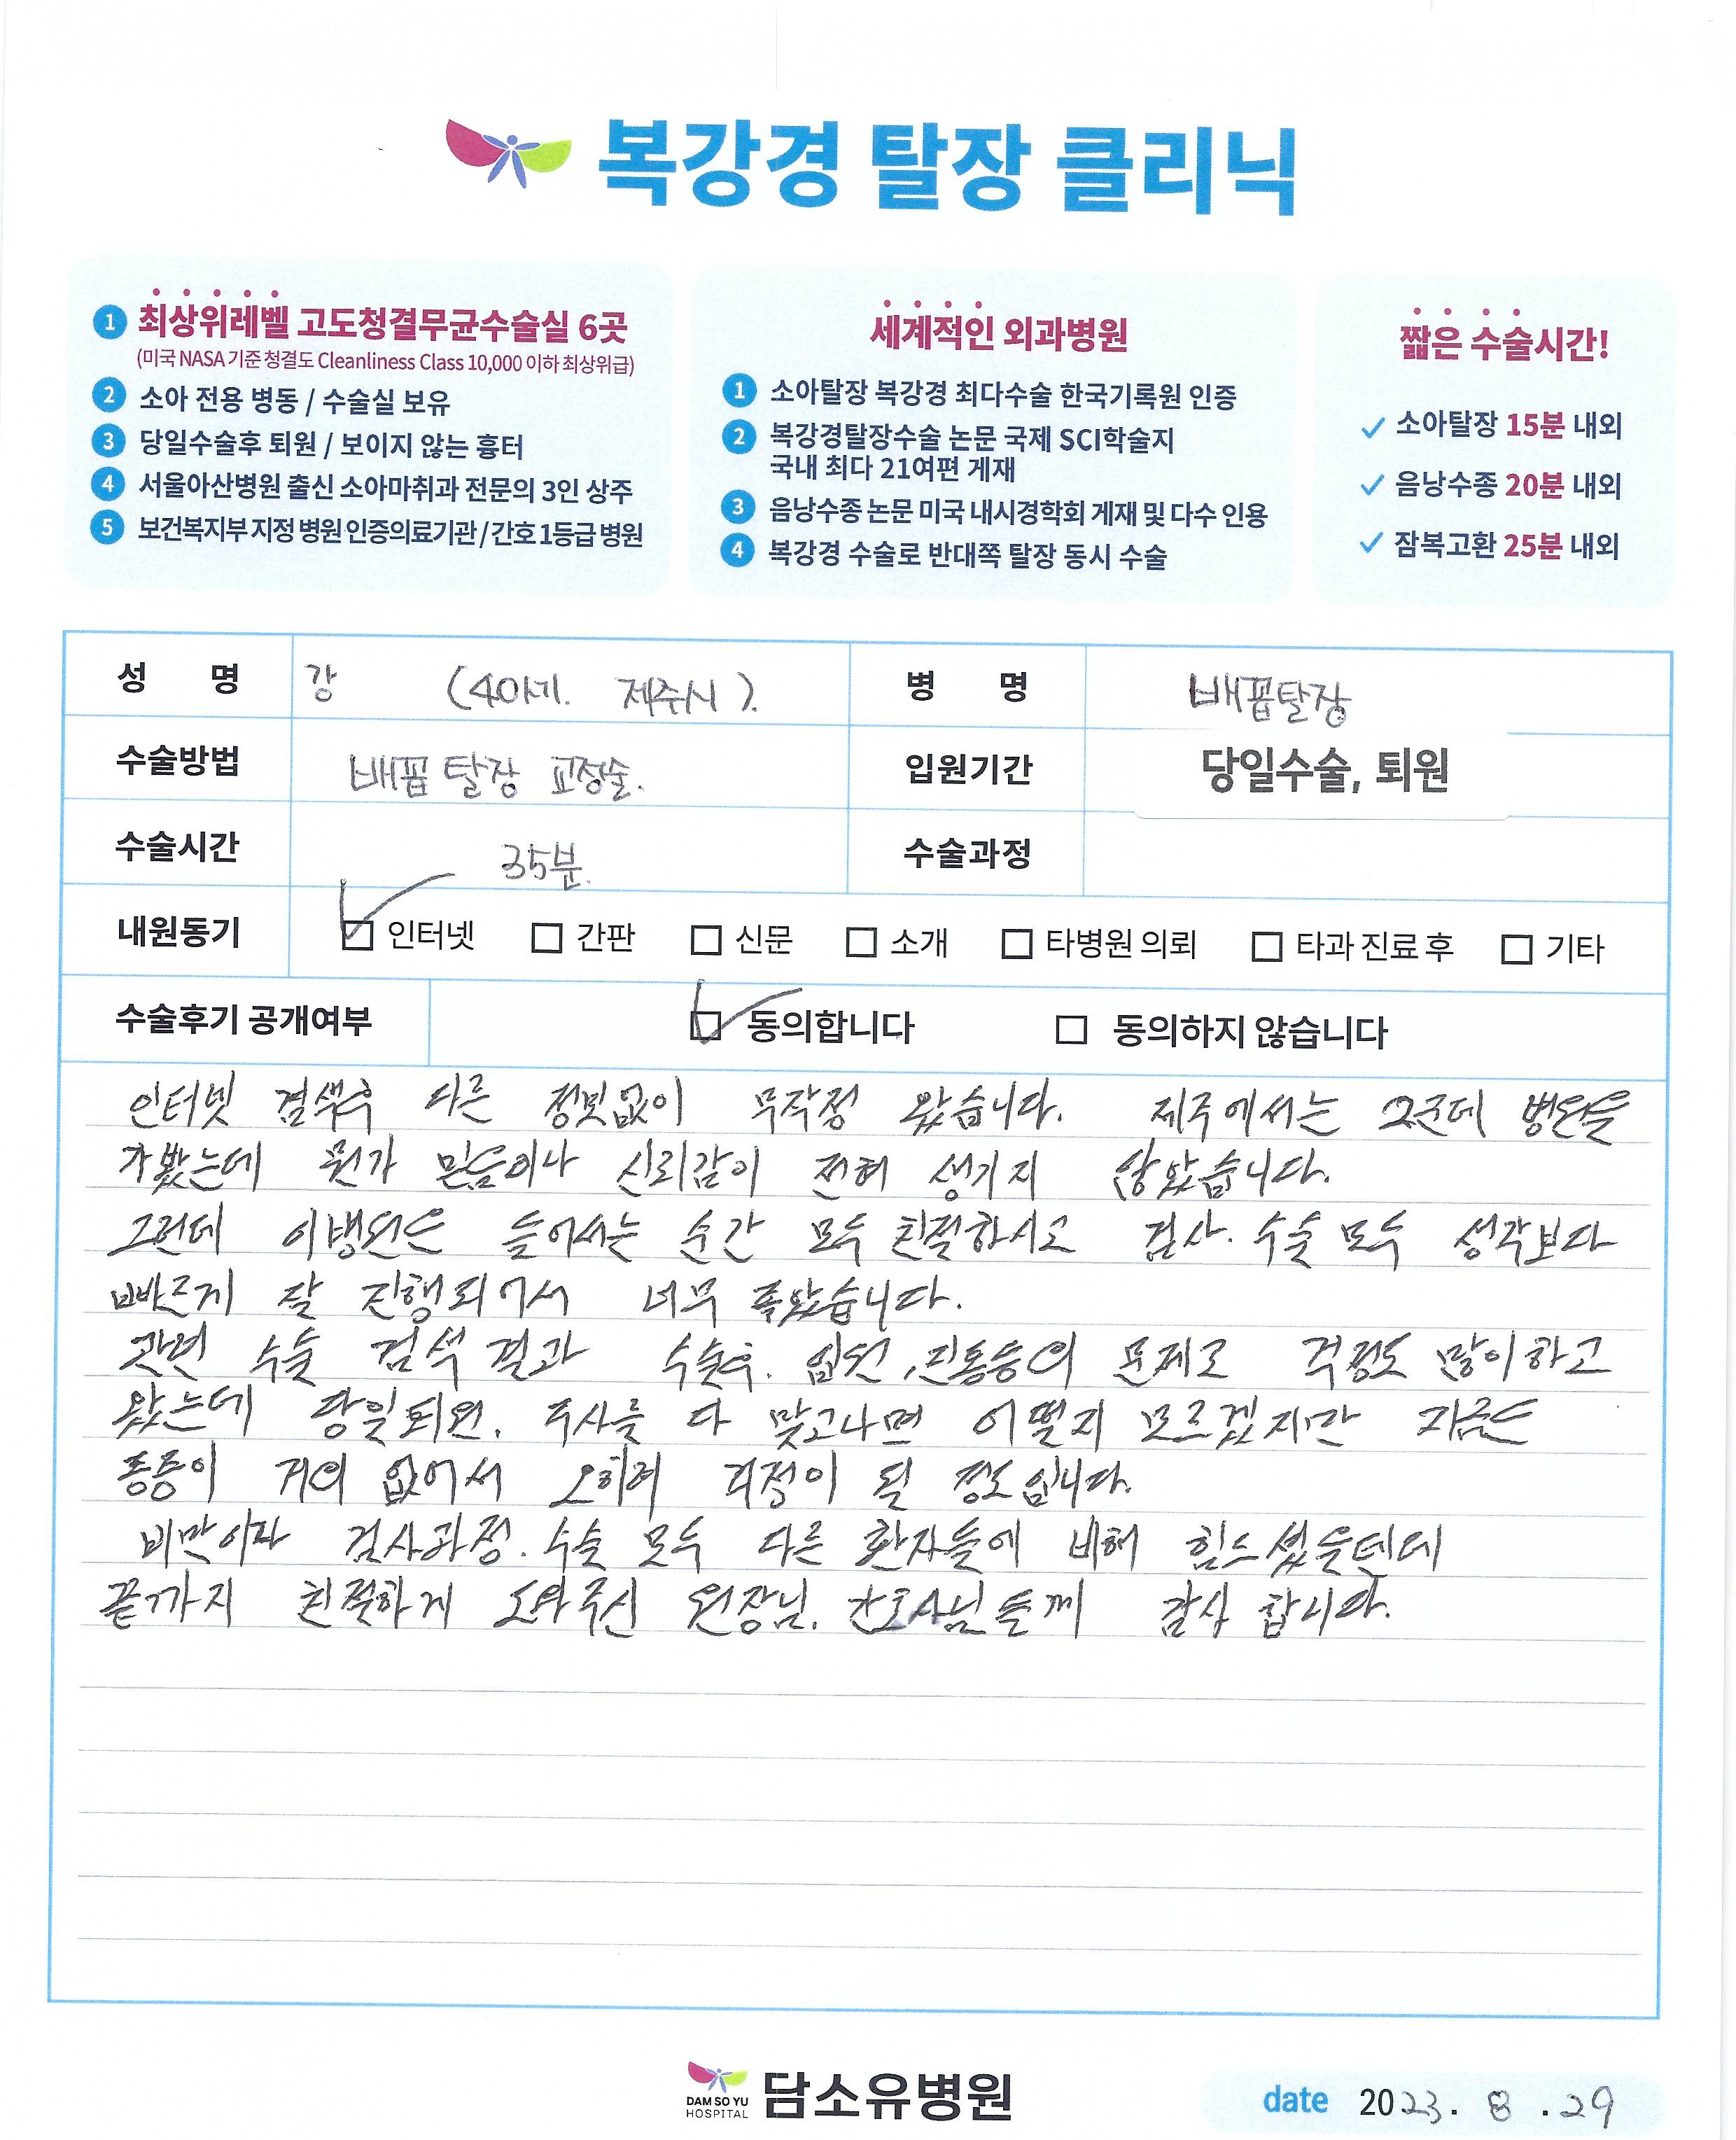 복강경 탈장 클리닉
1 최상위레벨 고도청결무균수술실 6곳
(미국 NASA 기준 청결도 Cleanliness Class 10,000 이하 최상위급)
2 소아 전용 병동 / 수술실 보유
3 당일수술후 퇴원 / 보이지 않는 흉터
4 서울아산병원 출신 소아마취과 전문의 3인 상주
5 보건복지부 지정 병원 인증의료기관 / 간호 1등급 병원
세계적인 외과병원
1 소아탈장 복강경 최다수술 한국기록원 인증
2 복강경탈장수술 논문 국제 SCI학술지
국내 최다 21여편 게재
3 음낭수종 논문 미국 내시경학회 게재 및 다수 인용
4 복강경 수술로 반대쪽 탈장 동시 수술
짧은 수술시간!
소아탈장 15분 내외
음낭수종 20분 내외
잠복고환 25분 내외
성 명 강 (40세. 제주시). 병 명 배꼽탈장
수술방법 배꼽탈장 교정술. 입원기간 당일수술, 퇴원
수술시간 35분. 수술과정
내원동기 인터넷 간판 신문 소개 타병원 의뢰 타과 진료 후 기타
수술후기 공개여부 동의합니다 동의하지 않습니다
인터넷 검색후 다른 정보없이 무작정 왔습니다. 제주에서는 2군데 병원을
가봤는데 뭔가 믿음이나 신뢰감이 전혀 생기지 않았습니다.
그런데 이병원은 들어서는 순간 모두 친절하시고 검사. 수술 모두 생각보다
빠르게 잘 진행되어서 너무 좋았습니다.
관련 수술 검색 결과 수술후. 입원, 진통등의 문제로 걱정도 많이하고
왔는데 당일퇴원. 주사를 다 맞고나면 어떨지 모르겠지만 지금은
통증이 거의 없어서 오히려 걱정이 될 정도입니다.
비만이라 검사과정. 수술 모두 다른 환자들에 비해 힘드셨을텐데
끝까지 친절하게 도와주신 원장님. 간호사님들께 감사 합니다.
DAM SO YU
HOSPITAL
담소유병원
date 2023. 8 .29